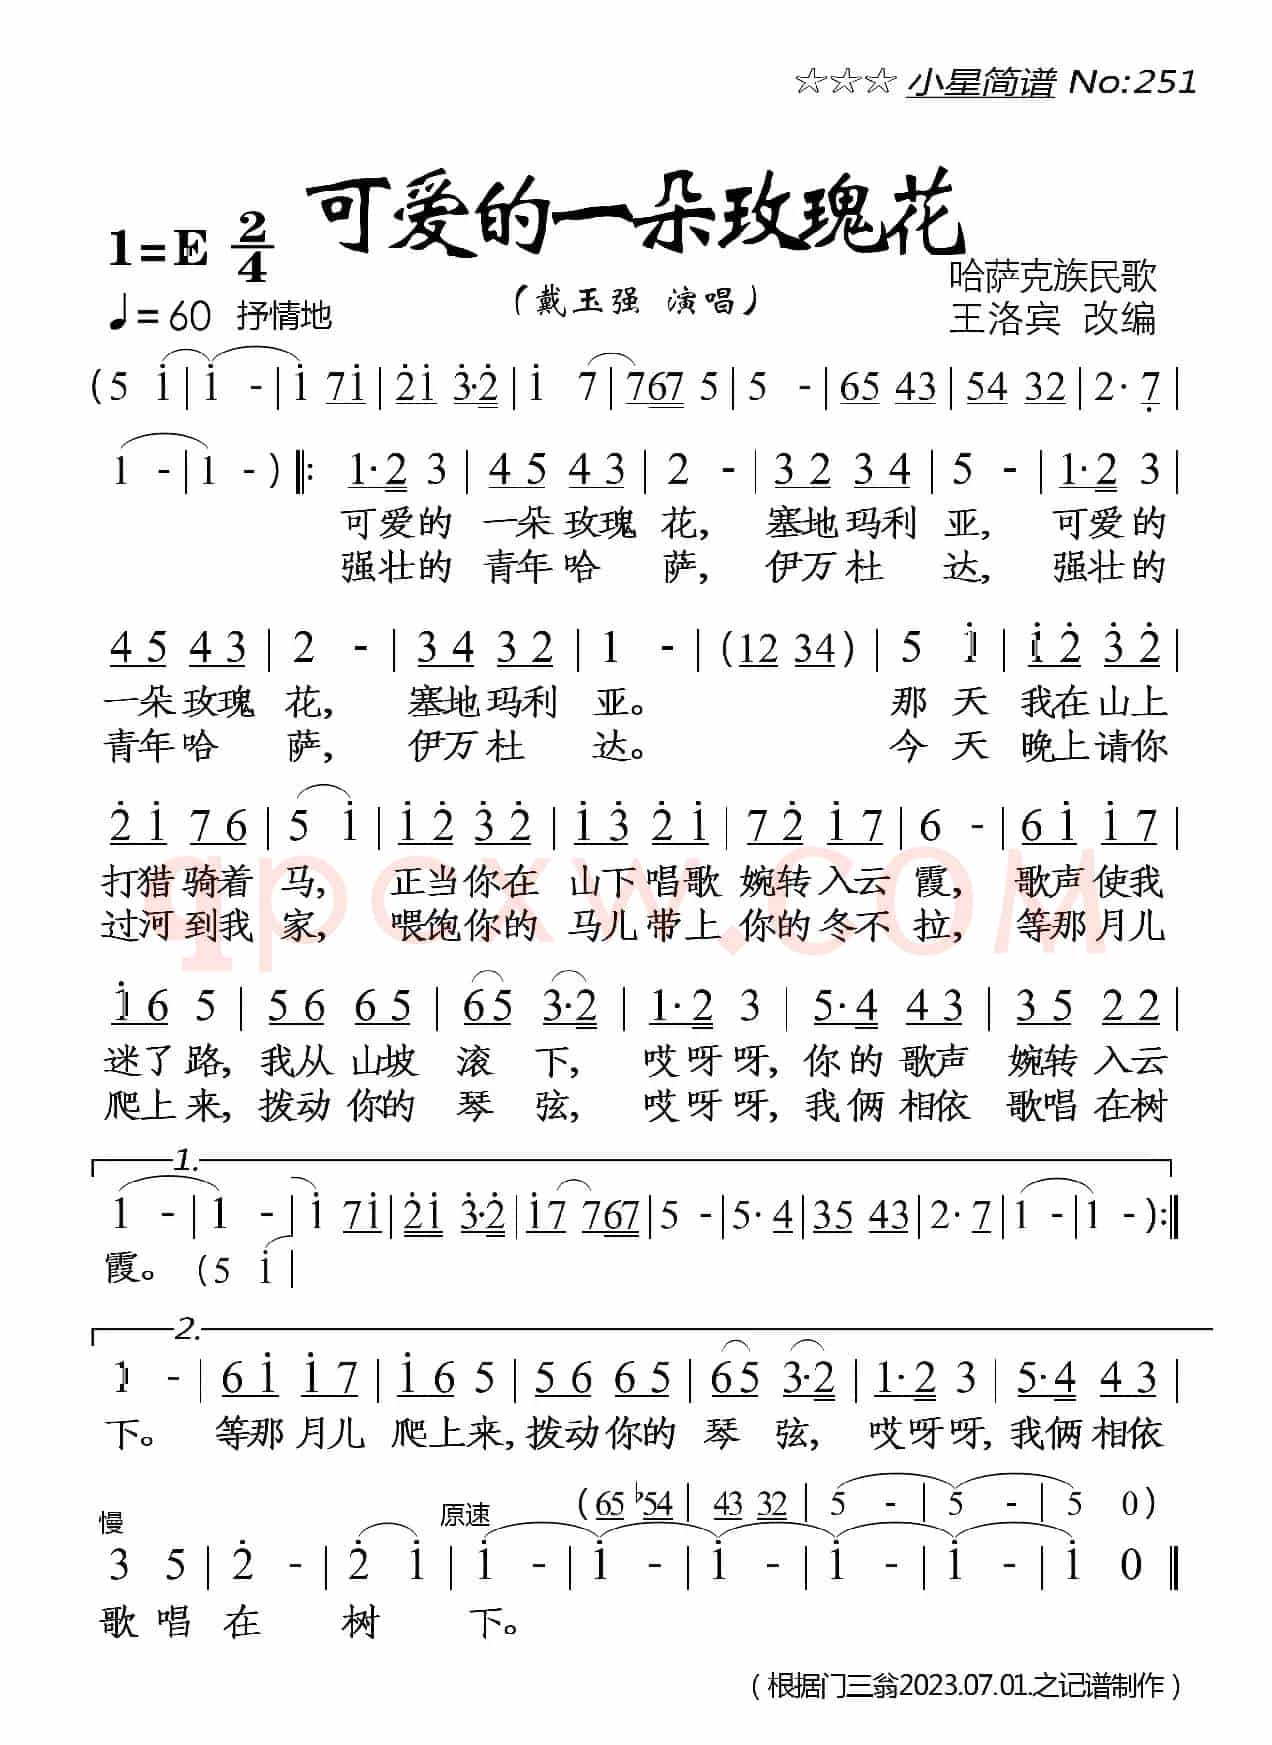 ☆☆☆ 小星简谱 No:251
可爱的一朵玫瑰花
1=E 2/4
♩=60 抒情地
（戴玉强 演唱）
哈萨克族民歌
王洛宾 改编
(5 i | i - | i 7i | 2i 3·2 | i 7 | 767 5 | 5 - | 65 43 | 54 32 | 2· 7 |
1 - | 1 - ) ‖: 1·2 3 | 4 5 4 3 | 2 - | 3 2 3 4 | 5 - | 1·2 3 |
可爱的 一朵玫瑰 花， 塞地玛利 亚， 可爱的
强壮的 青年哈 萨， 伊万杜 达， 强壮的
4 5 4 3 | 2 - | 3 4 3 2 | 1 - | (12 34) | 5 i | i 2 3 2 |
一朵玫瑰 花， 塞地玛利 亚。 那 天 我在山上
青年哈 萨， 伊万杜 达。 今 天 晚上请你
2 i 7 6 | 5 i | i 2 3 2 | i 3 2 i | 7 2 i 7 | 6 - | 6 i i 7 |
打猎骑着 马， 正当你在 山下唱歌 婉转入云 霞， 歌声使我
过河到我 家， 喂饱你的 马儿带上 你的冬不 拉， 等那月儿
qpcxw.COM
i 6 5 | 5 6 6 5 | 65 3·2 | 1·2 3 | 5·4 4 3 | 3 5 2 2 |
迷了路， 我从山坡 滚 下， 哎呀呀， 你的歌声 婉转入云
爬上来， 拨动你的 琴 弦， 哎呀呀， 我俩相依 歌唱在树
1.
1 - | 1 - | i 7i | 2i 3·2 | i7 767 | 5 - | 5· 4 | 35 43 | 2· 7 | 1 - | 1 - ):‖
霞。 (5 i |
2.
1 - | 6 i i 7 | i 6 5 | 5 6 6 5 | 65 3·2 | 1·2 3 | 5·4 4 3 |
下。 等那月儿 爬上来， 拨动你的 琴 弦， 哎呀呀， 我俩相依
(65 ♭54 | 43 32 | 5 - | 5 - | 5 0)
慢 原速
3 5 | 2 - | 2 i | i - | i - | i - | i - | i - | i 0 ‖
歌唱 在 树 下。
（根据门三翁2023.07.01.之记谱制作）